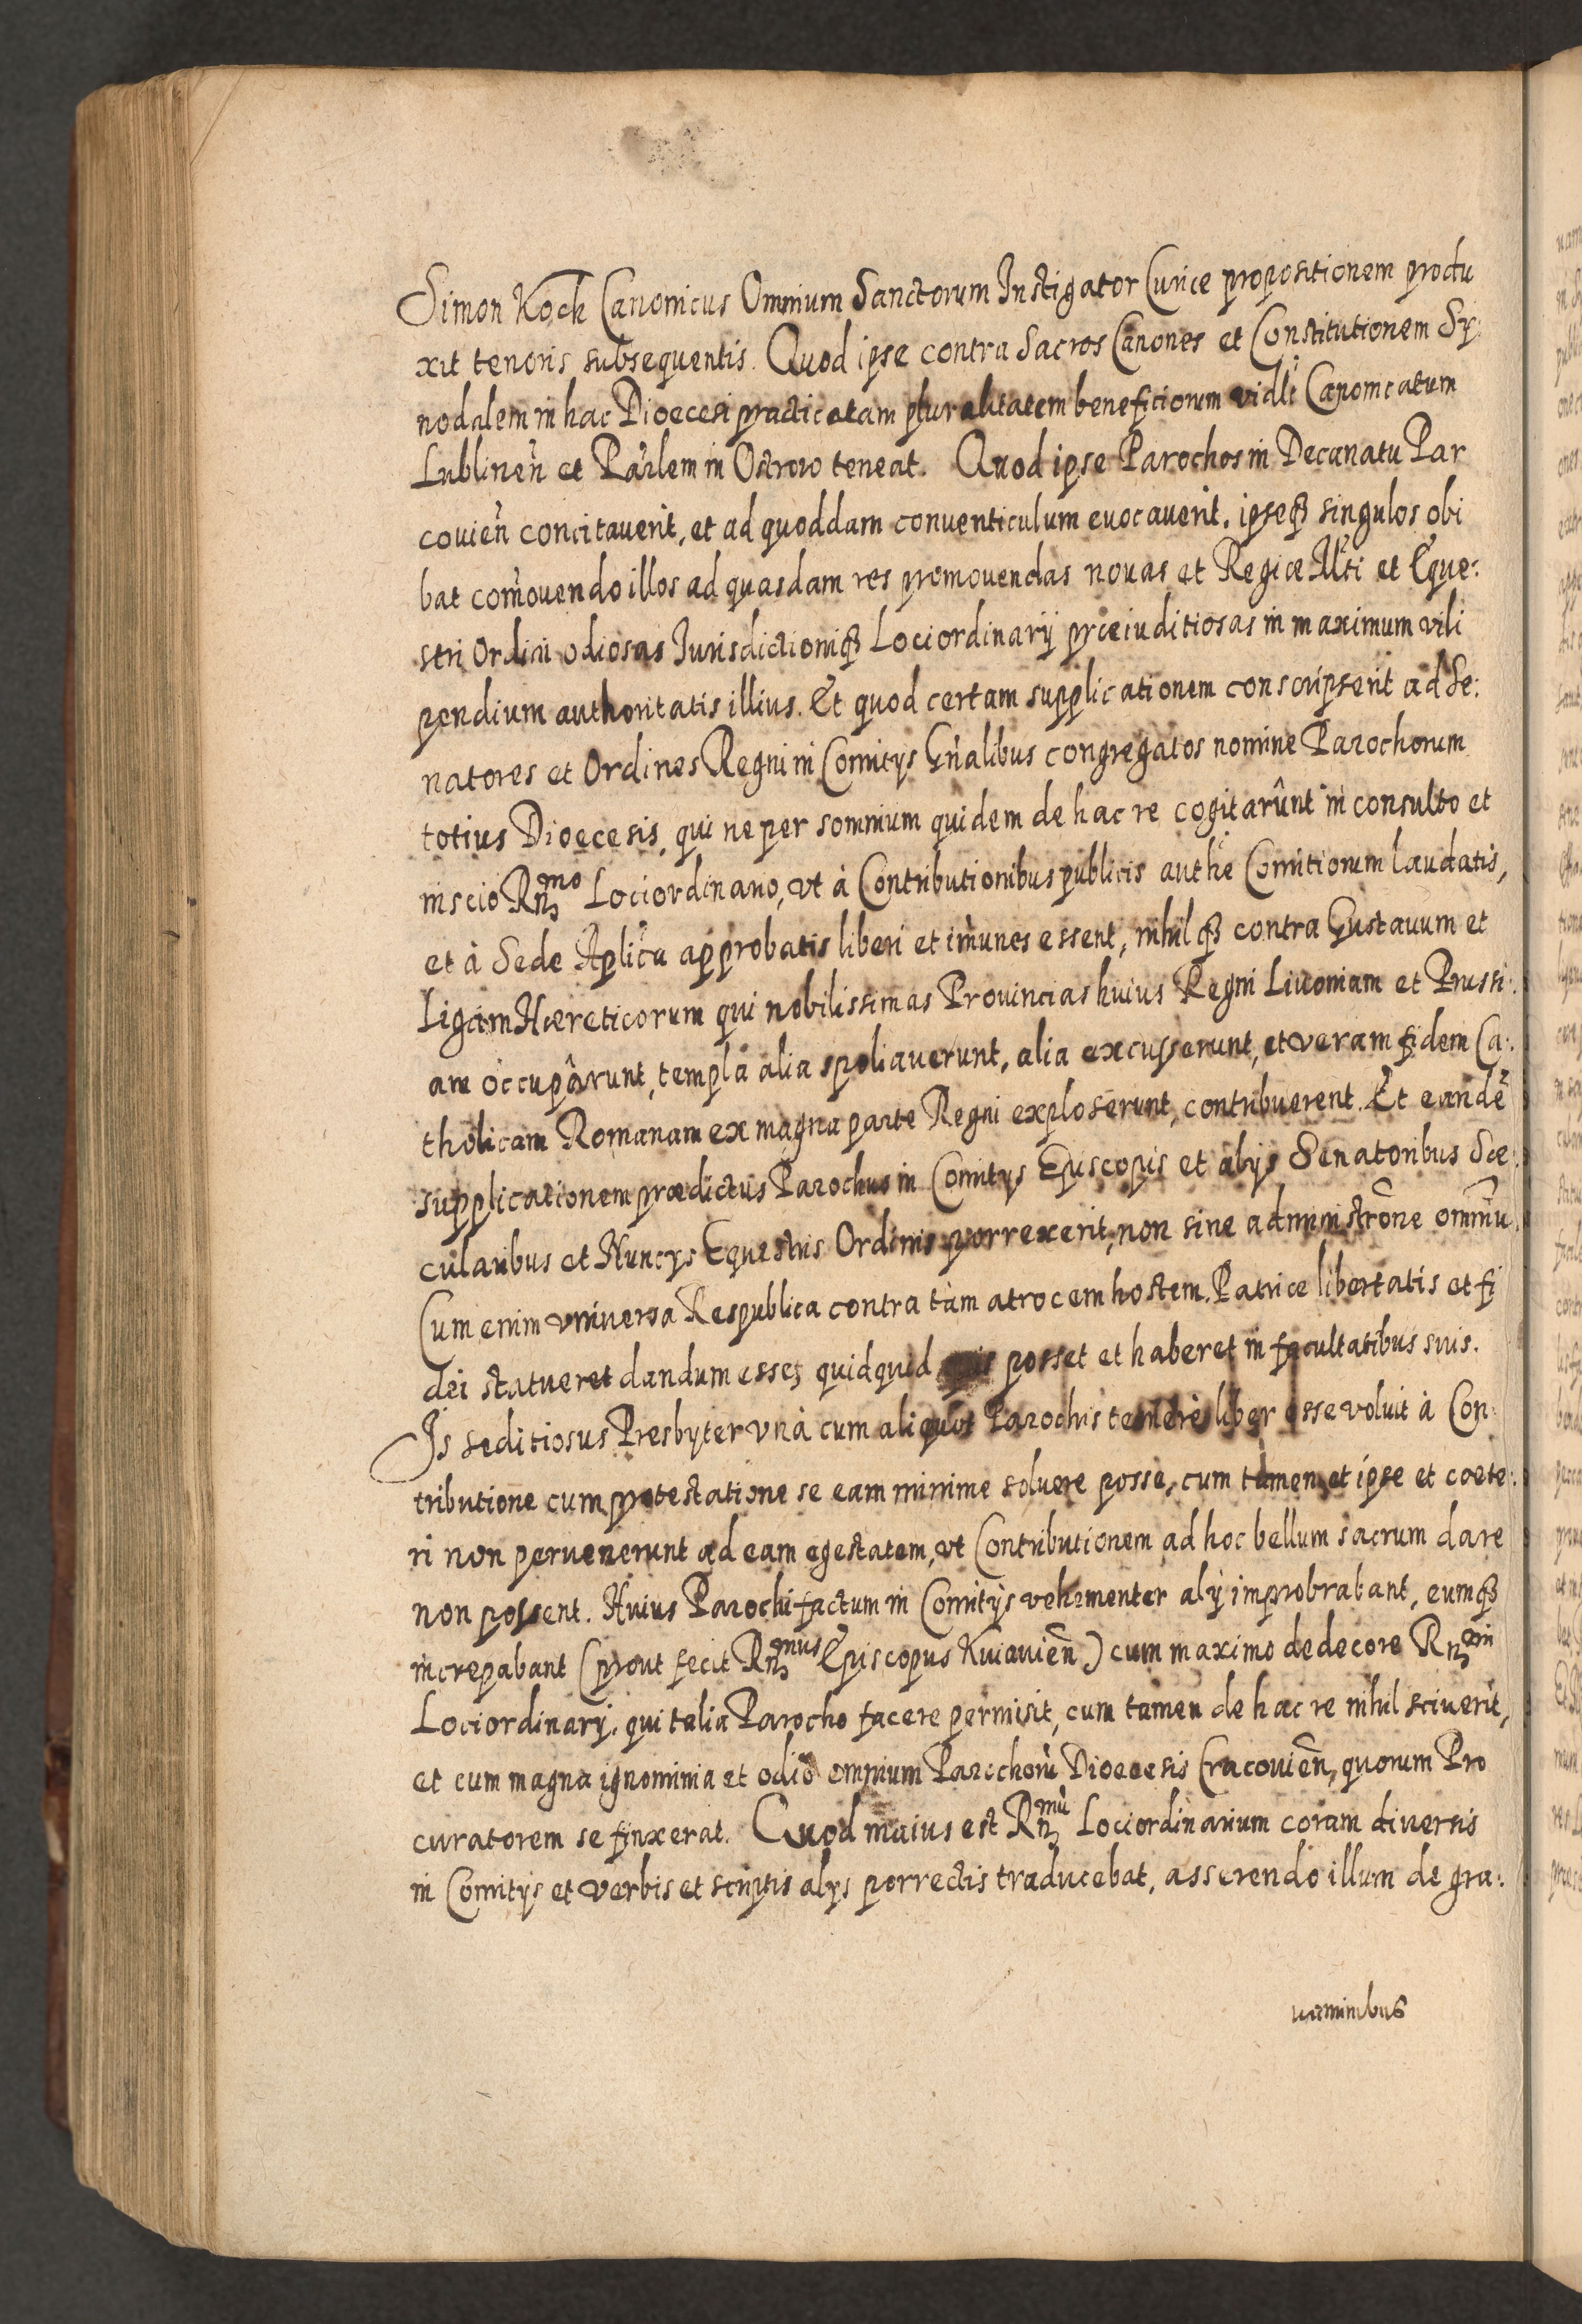 Simon Koch Canonicus Omnium Sanctorum Instigator Curiæ propositionem produ
xit tenoris subsequentis. Quod ipse contra Sacros Canones et Constitutionem Sy:
nodalem in hac Dioecesi practicatam pluralitatem beneficiorum vidlt Canonicatum
Lublinen̄ et Par̄lem in Ostrow teneat. Quod ipse Parochos in Decanatu Par
couien̄ concitauerit, et ad quoddam conuenticulum euocauerit, ipseq₃ singulos obi
bat com̄ouendo illos ad quasdam res promouendas nouas et Regiæ Mtti et Eque:
stri Ordini odiosas Jurisdictioniq₃ Lociordinarij præiuditiosas in maximum vili
pendium authoritatis illius. Et quod certam supplicationem conscripserit ad Se:
natores et Ordines Regni in Comitys Gn̄alibus congregatos nomine Parochorum
totius Dioecesis, qui ne per somnium quidem de hac re cogitarûnt inconsulto et
inscio Rn₃mo Lociordinario, vt à Contributionibus publicis authē Comitiorum laudatis,
et à Sede Aplica approbatis liberi et im̄unes essent, nihilq₃ contra Gustauum et
Ligam Hæreticorum qui nobilissimas Prouincias huius Regni Liuoniam et Prussi:
am occupârunt, templa alia spoliauerunt, alia excusserunt, et veram fidem Ca:
tholicam Romanam ex magna parte Regni exploserunt, contribuerent. Et eandē
supplicationem prædictus Parochus in Comitys Episcopis et alijs Senatoribus Sæ:
cularibus et Nuncys Equestris Ordinis porrexerit, non sine administrōne omniū.
Cum enim vniuersa Respublica contra tàm atrocem hostem Patriæ libertatis et fi
dei statueret dandum esse, quidquid quis posset et haberet in facultatibus suis.
Is seditiosus Presbyter vnà cum aliquot Parochis temerè liber esse voluit à Con:
tributione cum protestatione se eam minime soluere posse, cum tamen et ipse et coete:
ri non peruenerunt ad eam egestatem, vt Contributionem ad hoc bellum sacrum dare
non possent. Huius Parochi factum in Comitijs vehementer alij improbrabant, eumq₃
increpabant (prout fecit Rn₃mus Episcopus Kuiauien̄) cum maximo dedecore Rn₃mi
Lociordinarij, qui talia Parocho facere permisit, cum tamen de hac re nihil sciuerit,
et cum magna ignominia et odio omnium Parochorū Dioecesis Cracouien̄, quorum Pro
curatorem se finxerat. Quod maius est Rn₃mū Lociordinarium coram diuersis
in Comitys et verbis et scriptis alys porrectis traducebat, asserendo illum de gra:
uaminibus